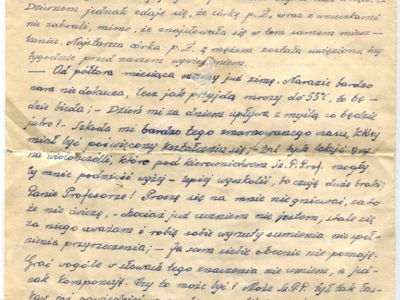 Dziwnem jednak zdaje się, że córkę p. Ż. wraz z wnuczkami
nie zabrali, mimo, że znajdowała się w tem samem miesz-
kaniu. Najstarsza córka p. Ż. z mężem została uwięziona trzy
tygodnie przed naszem wywiezieniem.
— Od półtora miesiąca mamy już zimę. Narazie bardzo
nam nie dokucza, lecz jak przyjdą mrozy do 55°C, to bę-
dzie bieda; – Dzień mi za dniem upływa z myślą co będzie
jutro? – Szkoda mi bardzo tego zmarnowanego czasu, któryby
miał być poświęcony kształceniu się; – Żal było lekcji gry
na wiolonczelli, które pod kierownictwem Sz. P. Prof. mogły
by mnie podnieść wyżej – lepiej wyszkolić, bo czuję duże braki;
Panie Profesorze! Proszę się na mnie nie gniewać, za to
że nie ćwiczę, – chociaż już uczniem nie jestem, stale się
za niego uważam i robię sobie wyrzuty sumienia nie speł-
nienia przyrzeczenia; – Ja sam siebie obecnie nie poznaję.
Grać wogóle w słowach tego znaczenia nie umiem, a jed-
nak komponuję. Czy to może być! Może Sz. P. P. był tak łas-